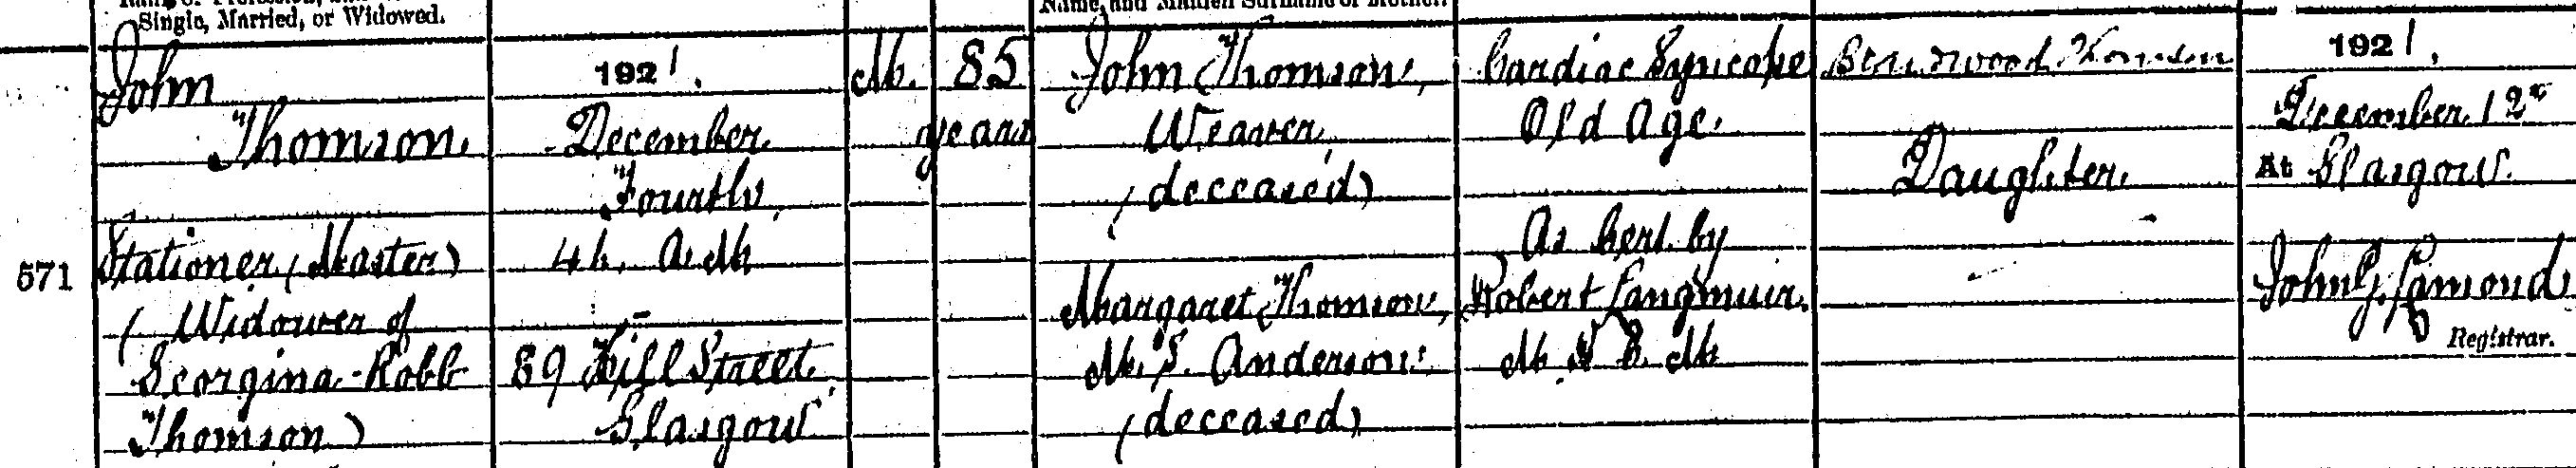 Single, Married, or Widowed.
Name, and Maiden Surname of Mother.
571
John
Thomson.
Stationer (Master)
(Widower of
Georgina Robb
Thomson)
1921.
December
Fourth,
4h. A.M.
89 Hill Street
Glasgow
M.
85
years
John Thomson,
Weaver,
(deceased)
Margaret Thomson,
M.S. Anderson.
(deceased)
Cardiac Syncope
Old Age.
As Cert. by
Robert Langmuir.
M.B. C.M.
Thomson
Daughter.
1921.
December 12th
At Glasgow.
John G. Lamond
Registrar.